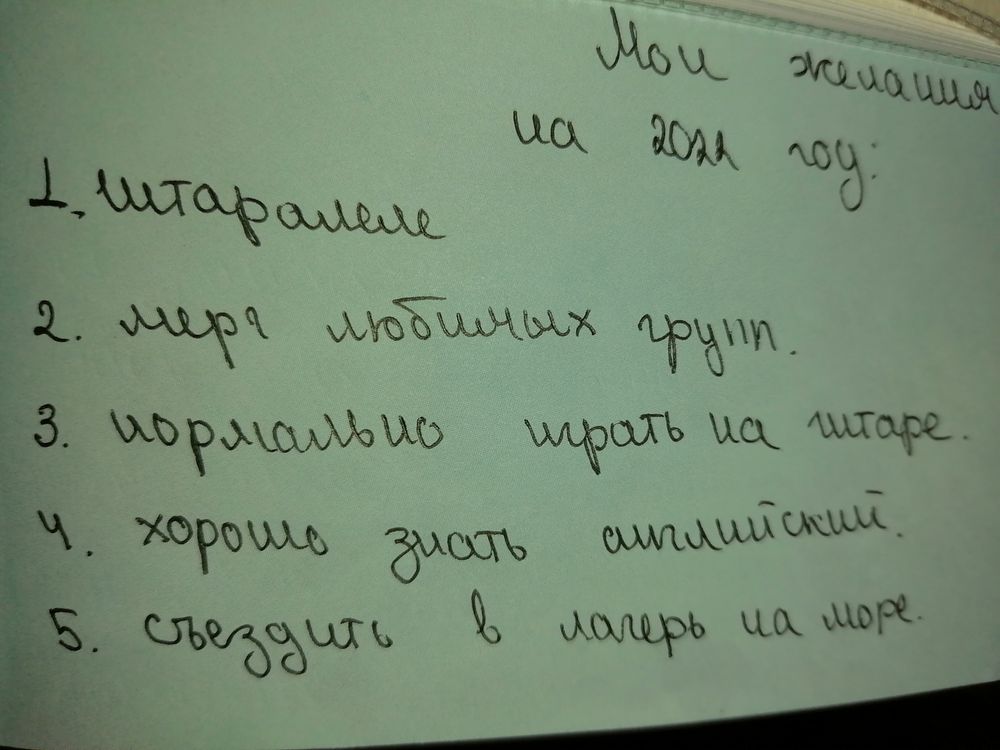 Мои желания
на 2022 год:
1. гитаралеле
2. мерч любимых групп.
3. нормально играть на гитаре.
4. хорошо знать английский.
5. съездить в лагерь на море.